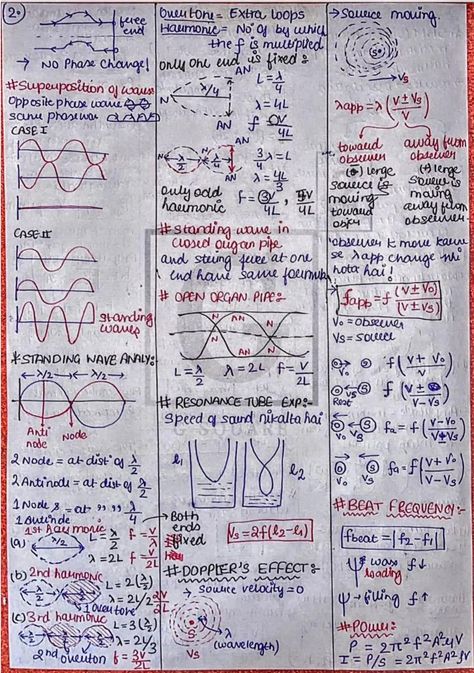 2.
free end
→ No Phase Change!
# Superposition of waves
opposite phase wave
same phase wave
CASE I
CASE II
standing waves
# STANDING WAVE ANALY:-
λ/2 λ/2
Anti node
Node
2 Node = at dist of λ/2
2 Antinode = at dist of λ/2
1 Node & = at ,, ,, λ/4
1 Antinode
1st harmonic
(a) λ/2 L = λ/2 f = V/2L
λ = 2L
(b) 2nd harmonic
L = 2(λ/2)
λ = 2L/2 2V/2L
1 overtone
(c) 3rd harmonic
L = 3(λ/2)
λ = 2L/3
2nd overtone f = 3V/2L
Overtone = Extra loops
Harmonic = No of by which the f is multiplied
only one end is fixed:-
AN
N λ/4 L = λ/4
λ = 4L
AN f = V/4L
AN
N λ/2 N 3/4 λ = L
λ = 4L/3
AN
only odd harmonic
f = 3V/4L, 5V/4L
# Standing wave in closed organ pipe
and string free at one end have same formula
# OPEN ORGAN PIPE:-
N N
N N
L = λ/2 λ = 2L f = V/2L
# RESONANCE TUBE EXP:-
Speed of sound nikalta hai
l₁ l₂
→ Both ends fixed
Vs = 2f(l₂ - l₁)
# DOPPLER'S EFFECT:-
→ Source velocity = 0
S
λ (wavelength)
Vs
→ Source moving
S
→ Vs
λapp = λ (V ± Vs / V)
toward observer
(-) lenge
source is moving toward
away from observer
(+) lenge
Source is moving away from observer
'observer k move karne se λapp change nhi hota hai!
fapp = f (V ± V₀)/(V ± Vs)
V₀ = observer
Vs = source
O→ ←S f (V + V₀ / V + Vs)
V₀ Vs
O ←S f (V / V - Vs)
Rest Vs
←O S→ fa = f (V - V₀ / V + Vs)
V₀ Vs
O→ S→ fa = f (V + V₀ / V + Vs)
V₀ Vs
# BEAT FREQUENCY:-
fbeat = |f₂ - f₁|
ψ wax loading f↓
ψ → filing f↑
# Power:-
P = 2π² f² A² μ V
I = P/S = 2π² f² A² ρV